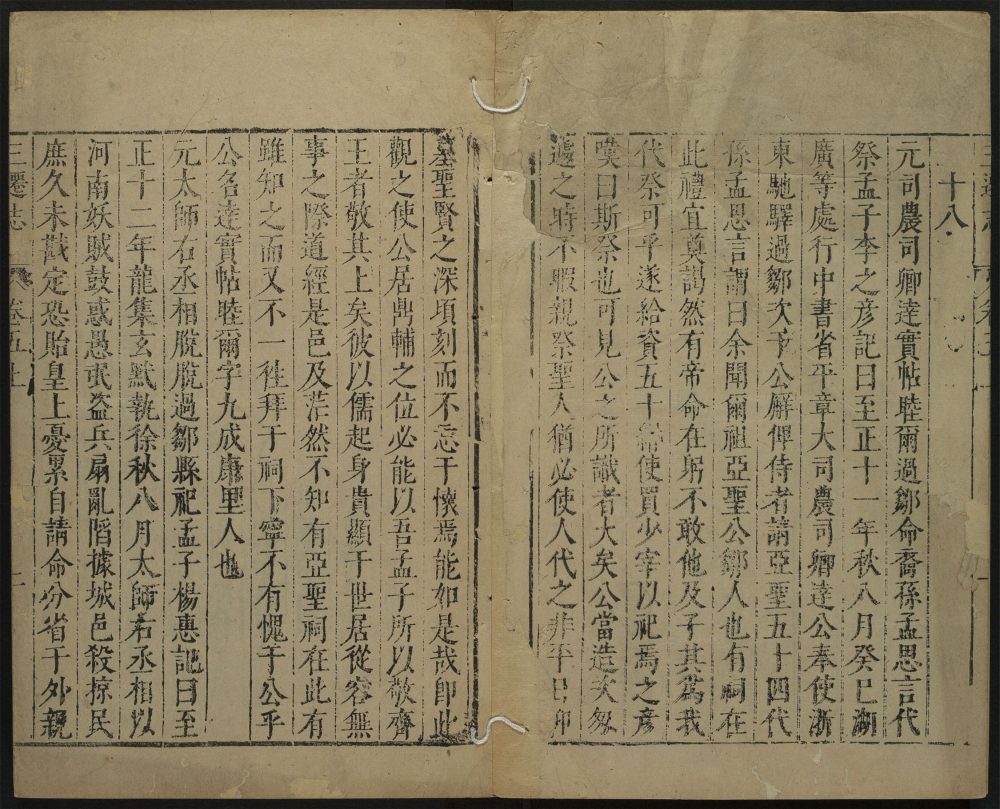 十八
元司農司卿達實帖睦爾過鄒命裔孫孟思言代
祭孟子李之彥記曰至正十一年秋八月癸巳湖
廣等處行中書省平章大司農司卿達公奉使浙
東馳驛過鄒次于公廨俾侍者請亞聖五十四代
孫孟思言謂曰余聞爾祖亞聖公鄒人也有祠在
此禮宜奠謁然有帝命在躬不敢他及子其為我
代祭可乎遂給資五十緡使買少宰以祀焉之彥
嘆曰斯祭也可見公之所識者大矣公當造次匆
遽之時不暇親祭聖人猶必使人代之非平日仰
聖賢之深頃刻而不忘于懷焉能如是哉卽此
觀之使公居鼎輔之位必能以吾孟子所以敬齊
王者敬其上矣彼以儒起身貴顯于世居從容無
事之際道經是邑及茫然不知有亞聖祠在此有
雖知之而又不一徃拜于祠下寧不有愧于公乎
公名達實帖睦爾字九成康里人也
元太師右丞相脫脫過鄒縣祀孟子楊惠記曰至
正十二年龍集玄黓執徐秋八月太師右丞相以
河南妖賊鼓惑愚氓盜兵扇亂陷據城邑殺掠民
庶久未戡定恐貽皇上憂累自請命分省于外親
三遷志 卷五上 一